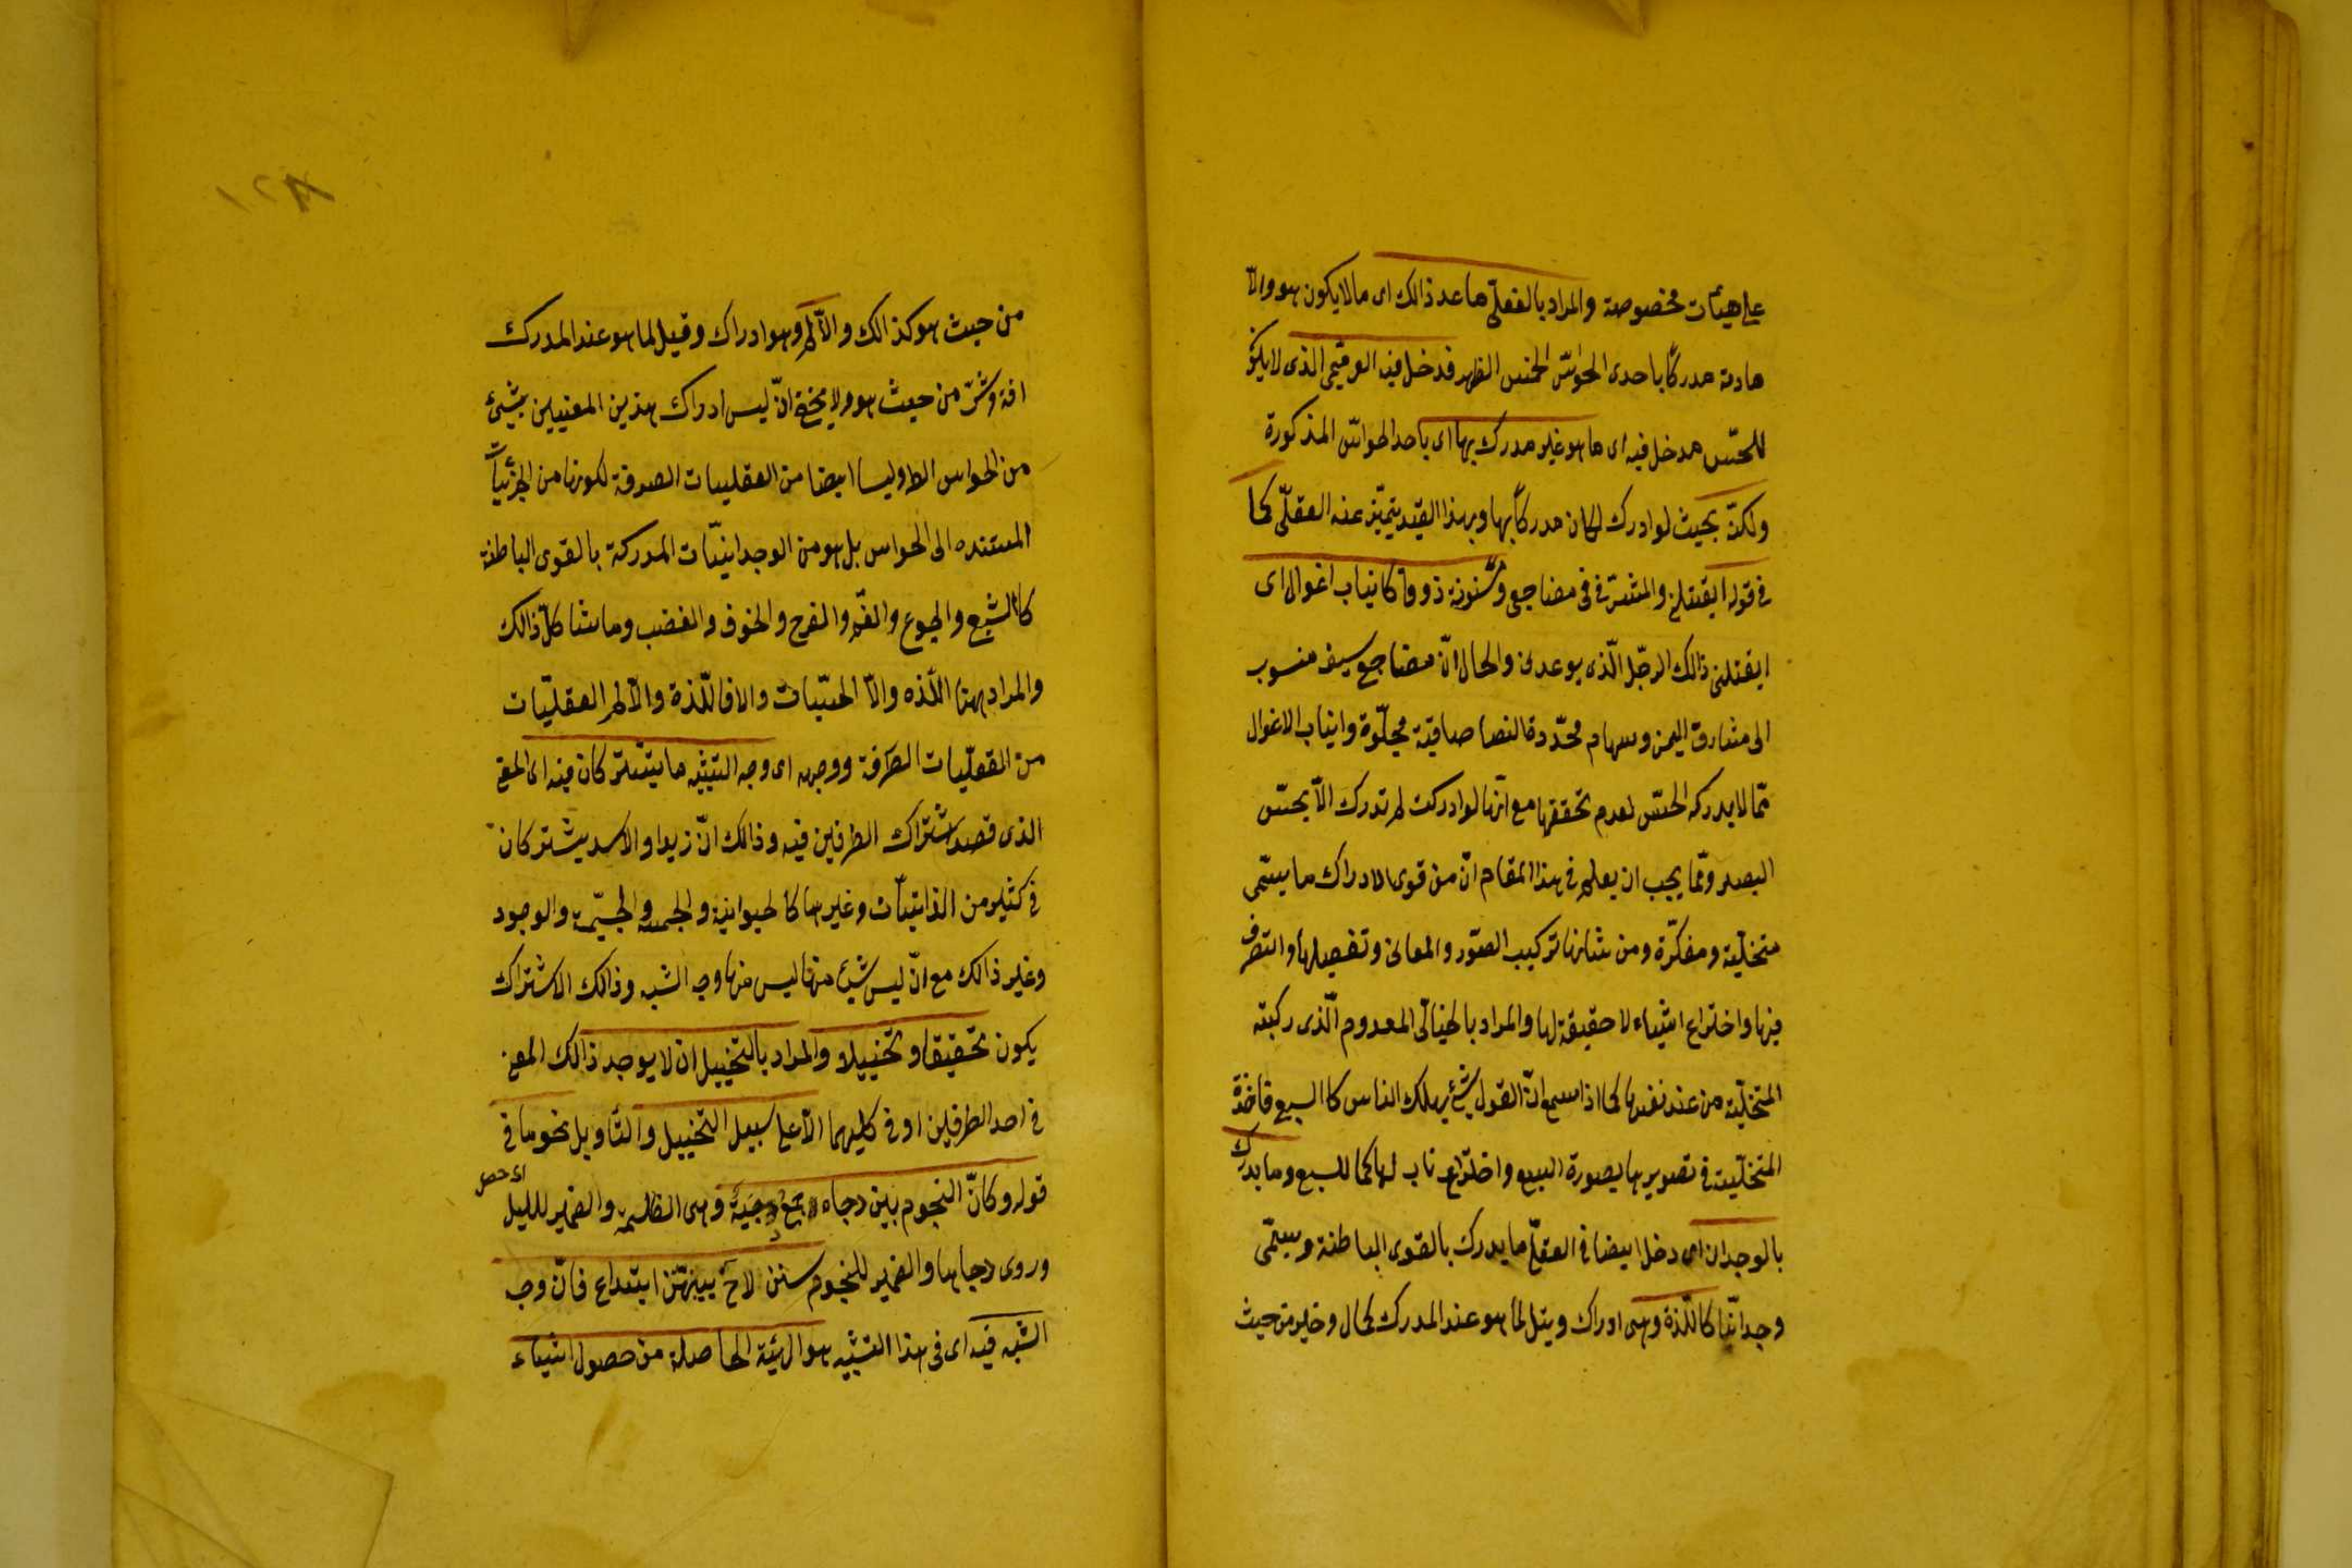 على هيئات مخصوصة والمراد بالعقلى ما عد ذالك اى ما لا يكون هو والا
مادته مدركا باحدى الحواس الخمس الظهر فدخل فيه الوهمى الذى لا يكون
للحس مدخل فيه اى ما هو غير مدرك بها اى باحد الحواس المذكورة
ولكن بحيث لو ادرك لكان مدركا بها وبهذا القيد يتميز عنه العقلى كما
فى قوله ايقتلنى والمشرفى مضاجعى ومسنونة ذوقا كانياب اغوال اى
ايقتلنى ذالك الرجل الذى يوعدنى والحال ان مضاجع سيف منسوب
الى مشارق اليمن وسهام محددة النصا صافية مجلوة وانياب الاغوال
مما لا يدركه الحس لعدم تحققها مع انها لو ادركت لم تدرك الا بحس
البصر ومما يجب ان يعلم فى هذا المقام ان من قوى الادراك ما يسمى
متخيلة ومفكرة ومن شانها تركيب الصور والمعانى وتفصيلها والتصرف
فيها واختراع اشياء لا حقيقة لها والمراد بالخيالى المعدوم الذى ركبته
المتخيلة من عند نفسها كما اذا سمع ان الغول شئ يهلك الناس كا السبع فاخذة
المتخيلة فى تصويرها بصورة السبع واختراع ناب لها كما للسبع وما يدرك
بالوجدان اى دخل ايضا فى العقلى ما يدرك بالقوى الباطنة ويسمى
وجدانيا كاللذة وهى ادراك ونيل لما هو عند المدرك كمال وخير من حيث
١٢٨
من حيث هو كذالك والالم وهو ادراك وقيل لما هو عند المدرك
افة وشر من حيث هو ولا يخفى ان ليس ادراك هذين المعنيين بشيئ
من الحواس الظ وليسا ايضا من العقليات الصرفة لكونها من الجزئيات
المستنده الى الحواس بل هو من الوجدانيات المدركة بالقوى الباطنة
كا الشبع والجوع والغم والفرح والخوف والغضب وما شاكل ذالك
والمراد ههنا اللذه والا الحسيات والا فاللذة والالم العقليات
من العقليات الصرافة ووجهه اى وجه التشبيه ما يشتركان فيه اى المعنى
الذى قصد اشتراك الطرفين فيه وذالك ان زيدا والاسد يشتركان
فى كثير من الذاتيات وغيرها كا لحيوانية والجسمه والجسمية والوجود
وغير ذالك مع ان ليس شئ منها ليس منها وجه الشبه وذالك الاشتراك
يكون تحقيقا وتخييلا والمراد بالتخييل ان لا يوجد ذالك المعنى
فى احد الطرفين او فى كليهما الا على سبيل التخييل والتأويل نحو ما فى
قوله وكان النجوم بين دجاه جمع دجية وهى الظلمة والضمير لليل
وروى دجاها والضمير للنجوم سنن لاح بينهن ابتداع فان وجه
الشبه فيه اى فى هذا التشبيه هو الهيئة الحاصلة من حصول اشياء